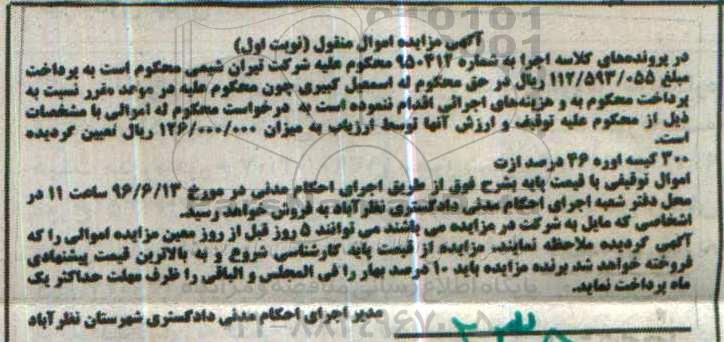 آگهی مزایده اموال منقول (نوبت اول)
در پرونده‌های کلاسه اجرا به شماره ۹۵۰۴۱۲ محکوم علیه شرکت تیران شیمی محکوم است به پرداخت
مبلغ ۱۱۲/۵۹۳/۰۵۵ ریال در حق محکوم له اسمعیل کبیری چون محکوم علیه در موعد مقرر نسبت به
پرداخت محکوم به و هزینه‌های اجرائی اقدام ننموده است به درخواست محکوم له اموالی با مشخصات
ذیل از محکوم علیه توقیف و ارزش آنها توسط ارزیاب به میزان ۱۲۶/۰۰۰/۰۰۰ ریال تعیین گردیده
است.
۳۰۰ کیسه اوره ۴۶ درصد ازت
اموال توقیفی با قیمت پایه بشرح فوق از طریق اجرای احکام مدنی در مورخ ۹۶/۶/۱۳ ساعت ۱۱ در
محل دفتر شعبه اجرای احکام مدنی دادگستری نظرآباد به فروش خواهد رسید.
اشخاصی که مایل به شرکت در مزایده می باشند می توانند ۵ روز قبل از روز معین مزایده اموالی را که
آگهی گردیده ملاحظه نمایند. مزایده از قیمت پایه کارشناسی شروع و به بالاترین قیمت پیشنهادی
فروخته خواهد شد برنده مزایده باید ۱۰ درصد بهار را فی المجلس و الباقی را ظرف مهلت حداکثر یک
ماه پرداخت نماید.
پایگاه اطلاع رسانی مناقصه و مزایده
مدیر اجرای احکام مدنی دادگستری شهرستان نظرآباد